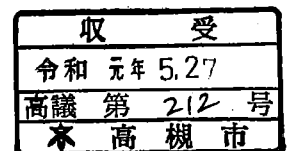 収受
令和元年5.27
高議第212号
高槻市